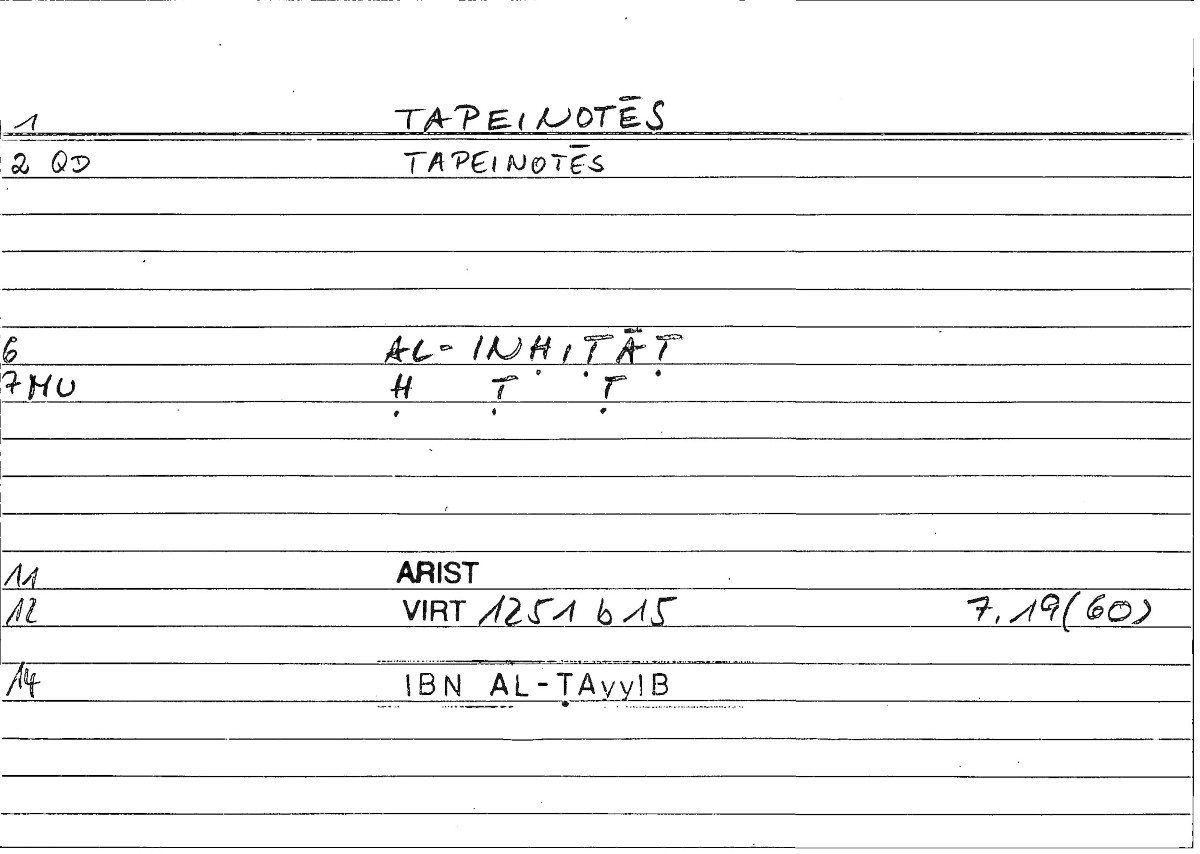 1 TAPEINOTĒS
2 QD TAPEINOTĒS
6 AL-INḤIṬĀṬ
7 MU Ḥ Ṭ Ṭ
11 ARIST
12 VIRT 1251 b 15 7.19(60)
14 IBN AL-ṬAyyIB